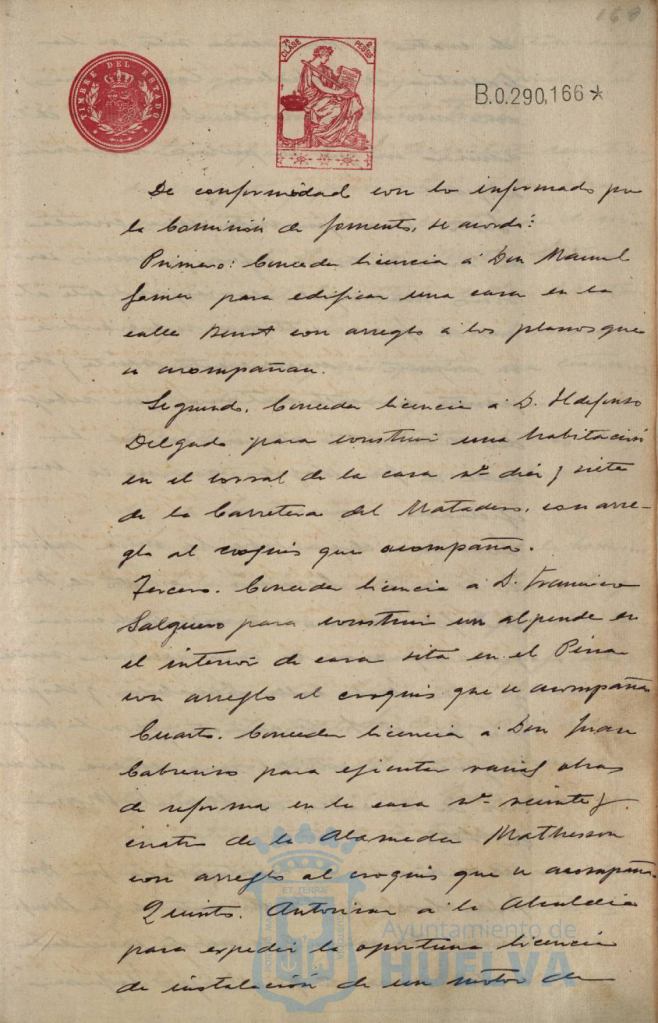 160
TIMBRE DEL ESTADO
7ª CLASE
2 PESETAS
B.0.290,166*
De conformidad con lo informado por
la Comisión de fomento, se acordó:
Primero: Conceder licencia á Don Manuel
para edificar una casa en la
calle con arreglo á los planos que
se acompañan.
Segundo. Conceder licencia á D. Ildefonso
Delgado para construir una habitación
en el corral de la casa nº diez y siete
de la Carretera del Matadero, con arre-
glo al croquis que acompaña.
Tercero. Conceder licencia á D. Francisco
Salguero para construir un alpende en
el interior de casa sita en el
con arreglo al croquis que se acompaña
Cuarto. Conceder licencia á Don Juan
para ejecutar varias obras
de reforma en la casa nº veinte y
cuatro de la Alameda Mathesson
con arreglo al croquis que se acompaña.
Quinto. Autorizar á la Alcaldia
para expedir la oportuna licencia
de instalación de un motor de
Ayuntamiento de
HUELVA